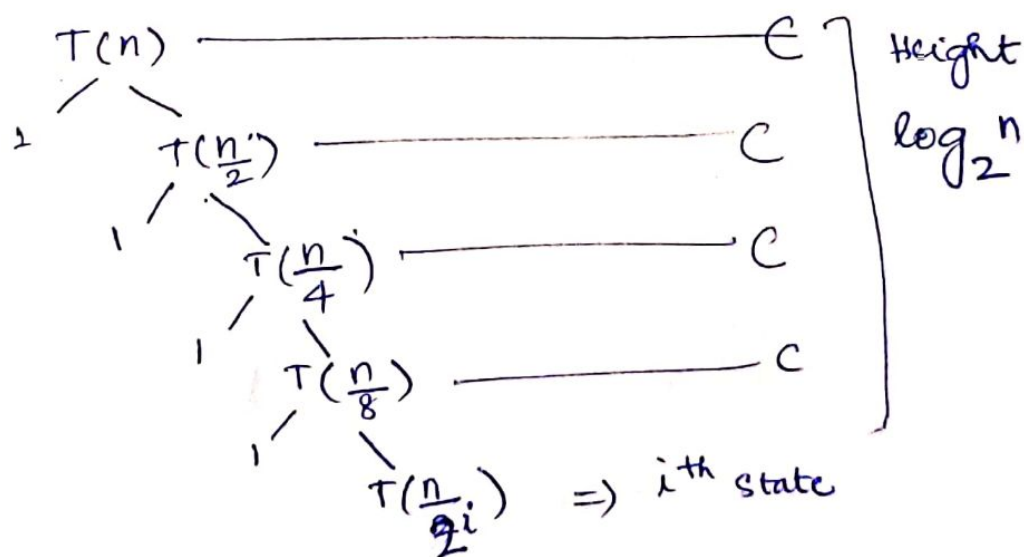 T(n) C Height
1 T(n/2) C log₂ n
1 T(n/4) C
1 T(n/8) C
1 T(n/2^i) => i^th state